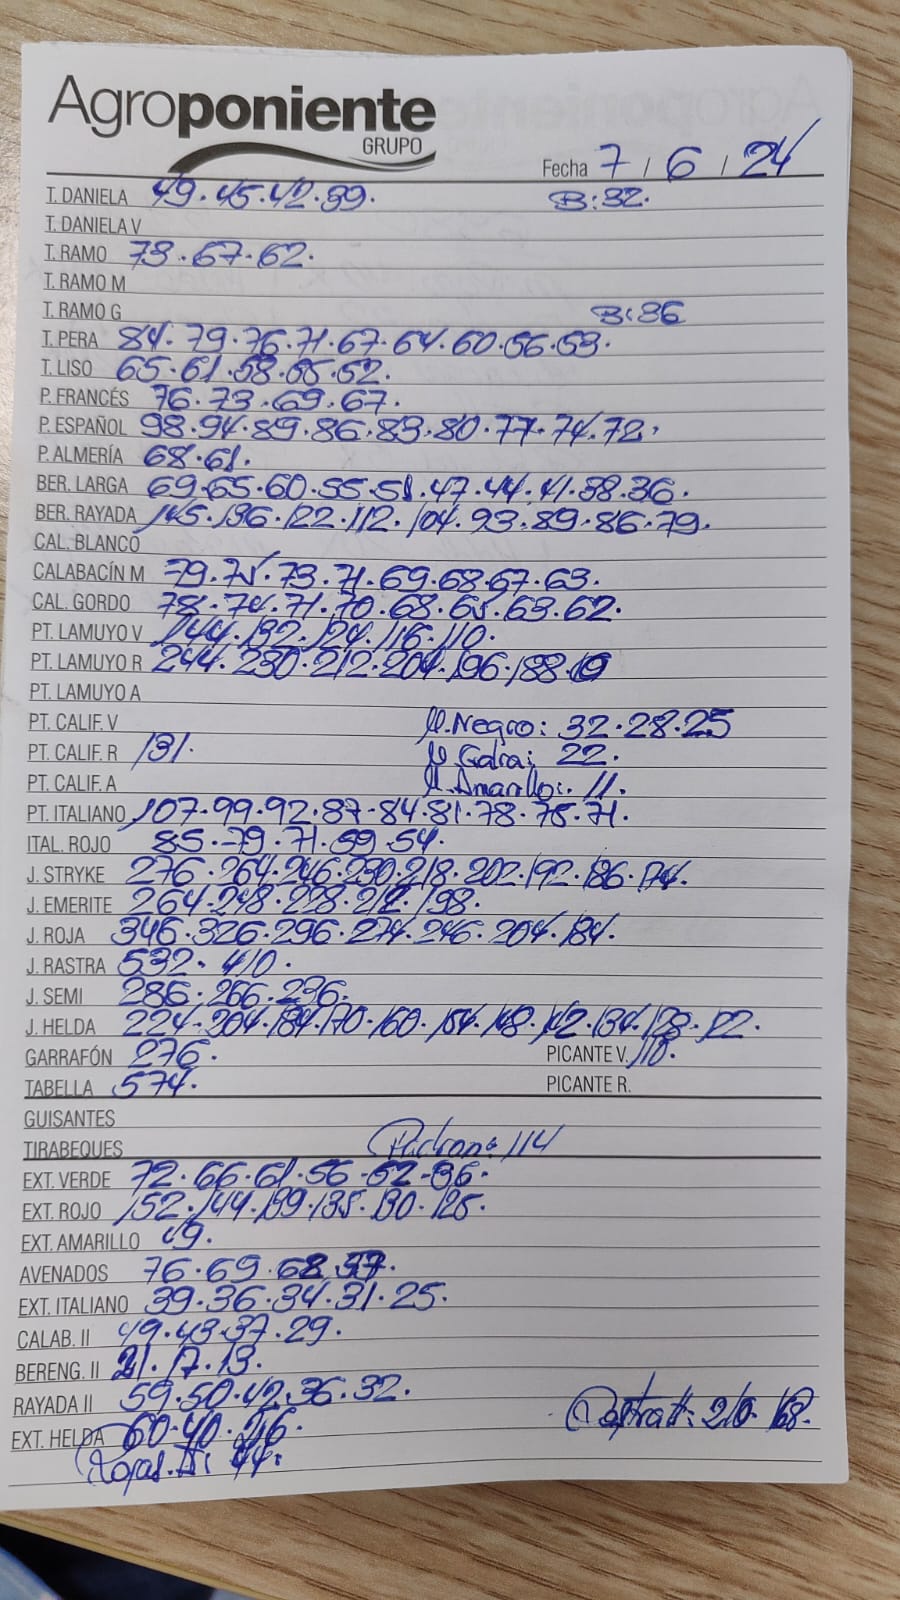 Agroponiente
GRUPO
Fecha 7 / 6 / 24
T. DANIELA 49.45.42.39. B:32.
T. DANIELA V
T. RAMO 73.67.62.
T. RAMO M
T. RAMO G B:36
T. PERA 84.79.76.71.67.64.60.56.53.
T. LISO 65.61.58.55.52.
P. FRANCÉS 76.73.69.67.
P. ESPAÑOL 98.94.89.86.83.80.77.74.72.
P. ALMERÍA 68.61.
BER. LARGA 69.65.60.55.51.47.44.41.38.36.
BER. RAYADA 145.136.122.112.104.93.89.86.79.
CAL. BLANCO
CALABACÍN M 79.75.73.71.69.68.67.63.
CAL. GORDO 78.74.71.70.68.65.63.62.
PT. LAMUYO V 144.132.124.116.110.
PT. LAMUYO R 244.230.212.204.196.188.
PT. LAMUYO A
PT. CALIF. V M.Negro: 32.28.25
PT. CALIF. R 131. 22.
PT. CALIF. A M.Amarillo: 11.
PT. ITALIANO 107.99.92.87.84.81.78.75.71.
ITAL. ROJO 85.79.71.59.54.
J. STRYKE 276.264.246.230.218.202.192.186.174.
J. EMERITE 264.248.228.212.198.
J. ROJA 346.326.296.274.246.204.184.
J. RASTRA 532.410.
J. SEMI 286.266.236.
J. HELDA 224.204.184.170.160.154.148.142.134.128.122.
GARRAFÓN 276. PICANTE V. 110.
TABELLA 574. PICANTE R.
GUISANTES
TIRABEQUES Padron: 114
EXT. VERDE 72.66.61.56.52.36.
EXT. ROJO 152.144.139.135.130.125.
EXT. AMARILLO 49.
AVENADOS 76.69.62.37.
EXT. ITALIANO 39.36.34.31.25.
CALAB. II 49.43.37.29.
BERENG. II 21.17.13.
RAYADA II 59.50.42.36.32.
EXT. HELDA 60.40.26. Rastra II: 210.168.
Rojas.II: 44.